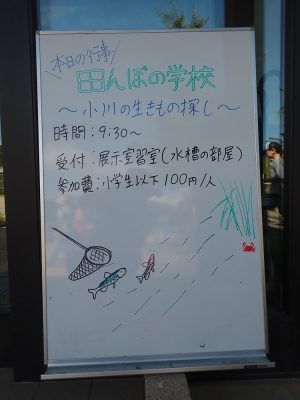 本日の行事
田んぼの学校
～小川の生きもの探し～
時間：9:30～
受付：展示室習室(水槽の部屋)
参加費：小学生以下100円/人